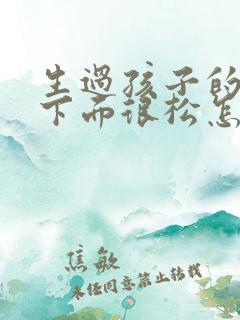 生过孩子的
下面很松怎
焦敏
未经同意禁止转载